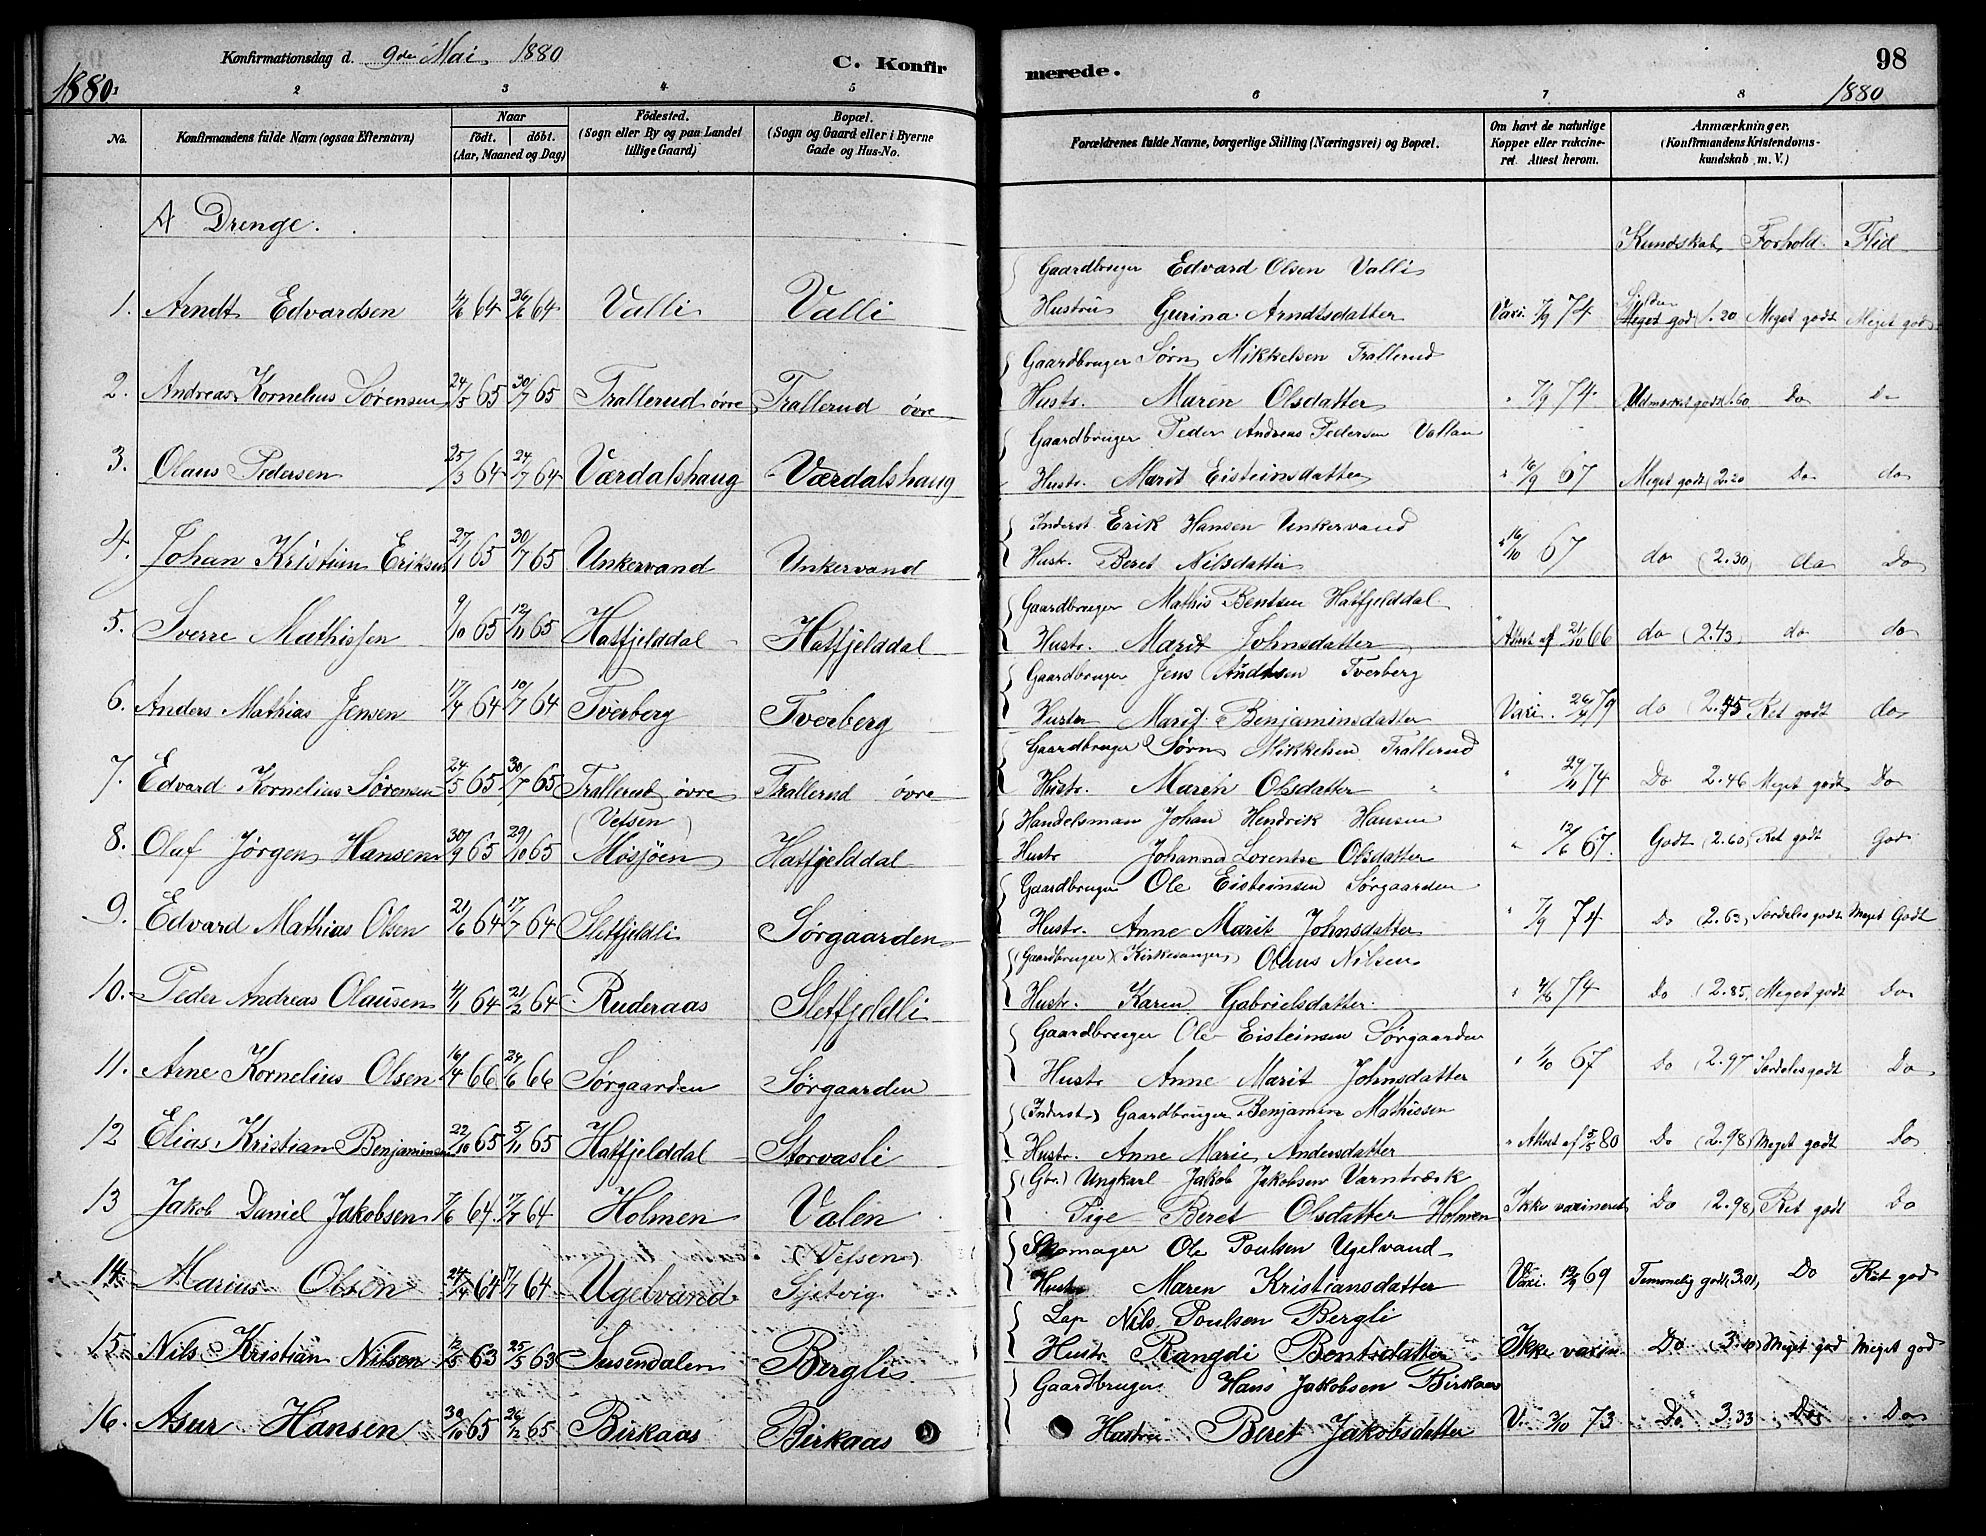 Konfirmationsdag d. 9de Mai 1880
C. Konfirmerede.
98
1880
1880
2 3 4 5 6 7 8
No.
Konfirmandens fulde Navn (ogsaa Efternavn)
Naar
født. døbt.
(Aar, Maaned og Dag)
Fødested.
(Sogn eller By og paa Landet
tillige Gaard)
Bopæl.
(Sogn og Gaard eller i Byerne
Gade og Hus-No.
Forældrenes fulde Navne, borgerlige Stilling (Næringsvei) og Bopæl.
Om havt de naturlige
Kopper eller vakcineret.
Attest herom.
Anmærkninger.
(Konfirmandens Kristendomskundskab
m. V.)
A Drenge.
Kundskab Forhold. Flid
Gaardbruger Edvard Olsen Valli
1. Arndt Edvardsen 4/6 64 26/6 64 Valli Valli Hustru Gurina Arndtsdatter Vaxi. 7/9 74 Meget godt 1.20 Meget godt Meget godt
Gaardbruger Sørn Mikkelsen Trallerud
2. Andreas Kornelius Sørensen 24/5 65 30/7 65 Trallerud øvre Trallerud øvre Hustr. Maren Olsdatter " 7/9 74 Udmærket godt 1.60 Do Do
Gaardbruger Peder Andreas Pedersen Vallan
3. Olaus Pedersen 25/3 64 24/7 64 Værdalshaug Værdalshaug Hustr. Marit Eisteinsdatter " 16/9 67 Meget godt (2.20 Do do
Inderst Erik Hansen Unkervand
4. Johan Kristian Eriksen 27/1 65 30/7 65 Unkervand Unkervand Hustr. Beret Nilsdatter " 16/10 67 do (2.30) do Do
Gaardbruger Mathis Bentsen Hatfjelddal
5. Sverre Mathissen 9/10 65 12/11 65 Hatfjelddal Hatfjelddal Hustr. Marit Johnsdatter " Attest af 21/10 66 do (2.43) do do
Gaardbruger Jens Andersen Tverberg
6. Anders Mathias Jensen 17/4 64 10/7 64 Tverberg Tverberg Hustr Marit Benjaminsdatter Vaxi. 26/4 79 do (2.45 Ret godt do
Gaardbruger Sørn Mikkelsen Trallerud
7. Edvard Kornelius Sørensen 24/5 65 30/7 65 Trallerud øvre Trallerud øvre Hustr. Maren Olsdatter " 29/11 74 Do 2.46 Meget godt Do
(Vefsen) Handelsman Johan Hendrik Hansen
8. Olaf Jørgen Hansen 30/9 65 29/10 65 Mosjøen Hatfjelddal Hustr Johanna Lorentse Olsdatter " 12/6 67. Godt (2.60) Ret godt Godt
Gaardbruger Ole Eisteinsen Sørgaarden
9. Edvard Mathias Olsen 21/6 64 17/7 64 Sletfjeldli Sørgaarden Hustr. Anne Marit Johnsdatter " 7/9 74 Do (2.63) Særdeles godt Meget Godt
(Gaardbruger) (Kirkesanger) Olaus Nilsen
10. Peder Andreas Olausen 4/1 64 21/2 64 Ruderaas Sletfjeldli Hustr. Karen Gabrielsdatter. " 4/6 74 Do (2.85. Meget godt Do
Gaardbruger Ole Eisteinsen Sørgaarden
11. Arne Kornelius Olsen 16/4 66 24/6 66 Sørgaarden Sørgaarden Hustr Anne Marit Johnsdatter " 1/10 67 Do (2.97 Særdeles godt Do
(Inderst) Gaardbruger Benjamin Mathissen
12 Elias Kristian Benjaminsen 22/10 65 5/11 65 Hatfjelddal Storvasli Hustr. Anne Marie Andersdatter " Attest af 5/5 80 Do (2.98) Meget godt Do
(Gbr.) Ungkarl Jakob Jakobsen Varntræsk
13 Jakob Daniel Jakobsen 7/6 64 17/7 64 Holmen Valen Pige Beret Olsdatter Holmen Ikke vaxineret Do (2.98) Ret godt Do
(Vefsen) Skomager Ole Poulsen Ugelvand
14. Marius Olsen 24/4 64 17/7 64 Ugelvand Hustr Maren Kristiansdatter Vaxi. 19/9 69 Temmelig godt 3.01, Do Ret godt
Lap Nils Poulsen Bergli
15. Nils Kristian Nilsen 12/5 63 25/5 63 Susendalen Bergli Hustr Rangdi Bentsdatter Ikke vaxin. Do (3.10) Meget god Meget god
Gaardbruger Hans Jakobsen Birkaas
16. Asur Hansen 30/10 65 26/12 65 Birkaas Birkaas Hustru Beret Jakobsdatter V. 3/10 73 Do 3.33 Do Do